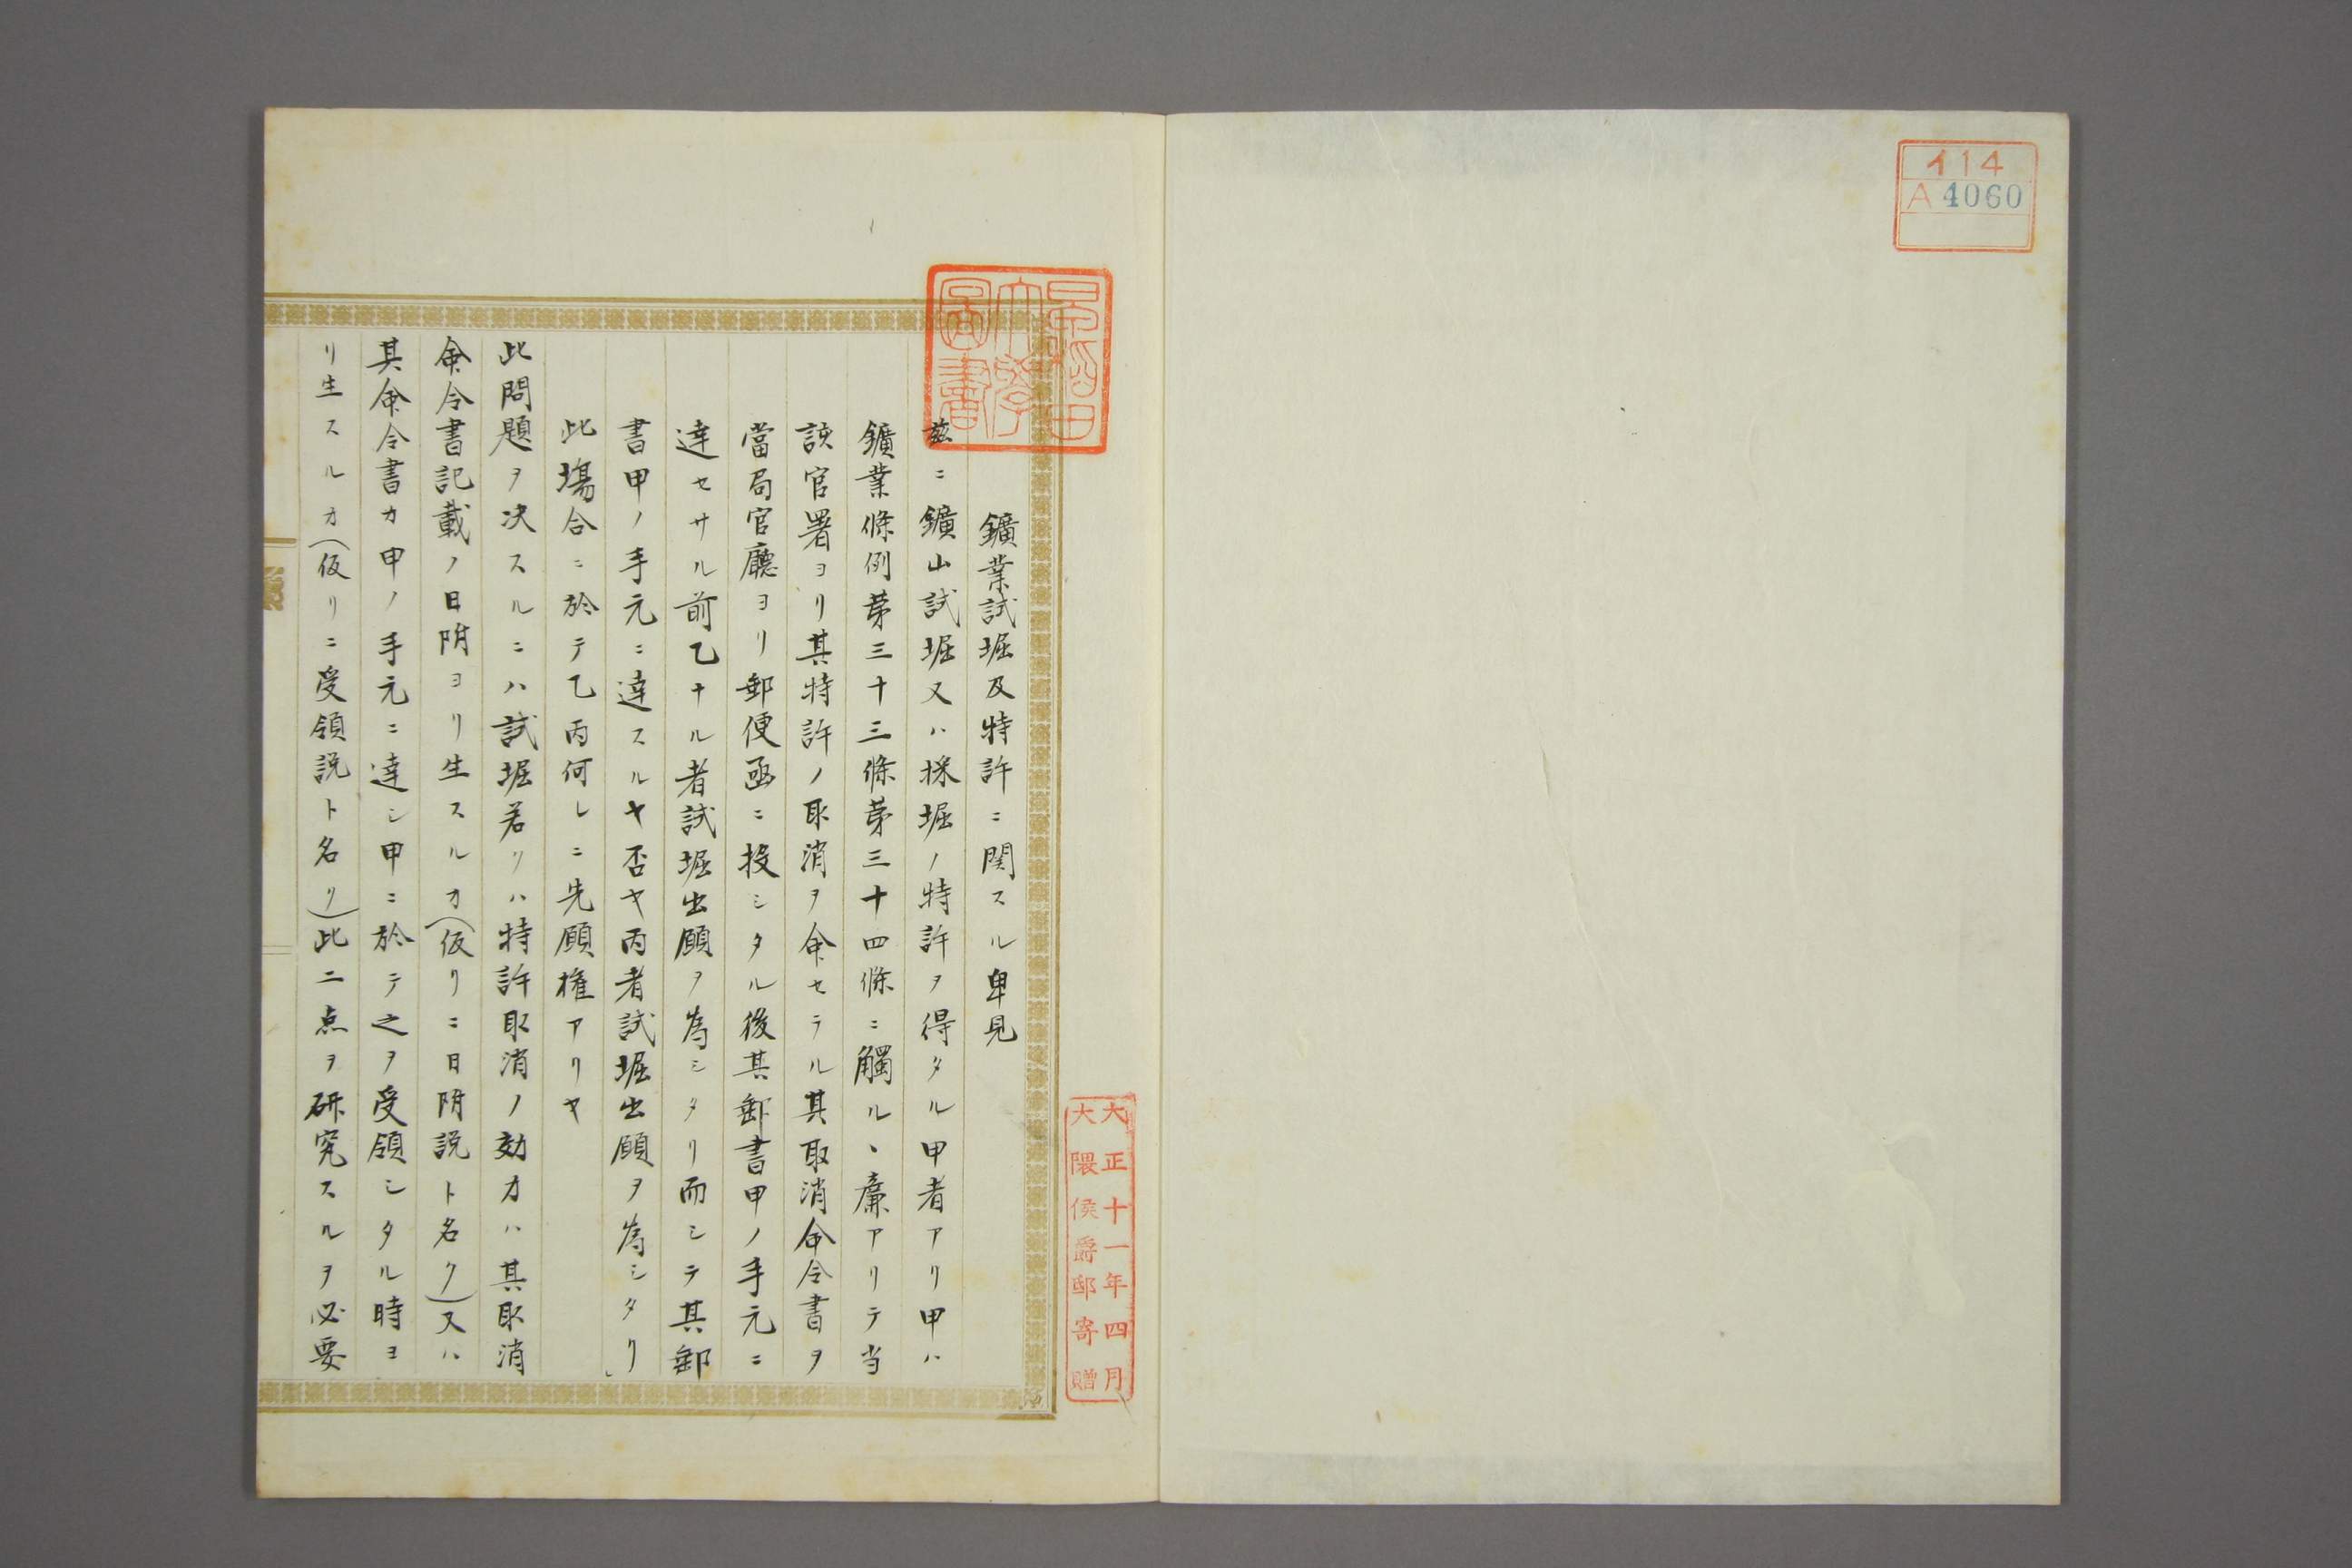 イ14
A4060
大正十一年四月
大隈侯爵邸寄贈
早稲田
大學
圖書
鑛業試堀及特許ニ関スル卑見
茲ニ鑛山試堀又ハ採堀ノ特許ヲ得タル甲者アリ甲ハ
鑛業條例第三十三條第三十四條ニ觸ルヽ廉アリテ当
該官署ヨリ其特許ノ取消ヲ命セラル其取消命令書ヲ
當局官廳ヨリ郵便函ニ投シタル後其郵書甲ノ手元ニ
達セサル前乙ナル者試堀出願ヲ為シタリ而シテ其郵
書甲ノ手元ニ達スルヤ否ヤ丙者試堀出願ヲ為シタリ
此場合ニ於テ乙丙何レニ先願権アリヤ
此問題ヲ决スルニハ試堀若クハ特許取消ノ効力ハ其取消
命令書記載ノ日附ヨリ生スルカ(仮リニ日附説ト名ク)又ハ
其命令書カ甲ノ手元ニ達シ甲ニ於テ之ヲ受領シタル時ヨ
リ生スルカ(仮リニ受領説ト名ク)此二点ヲ研究スルヲ必要